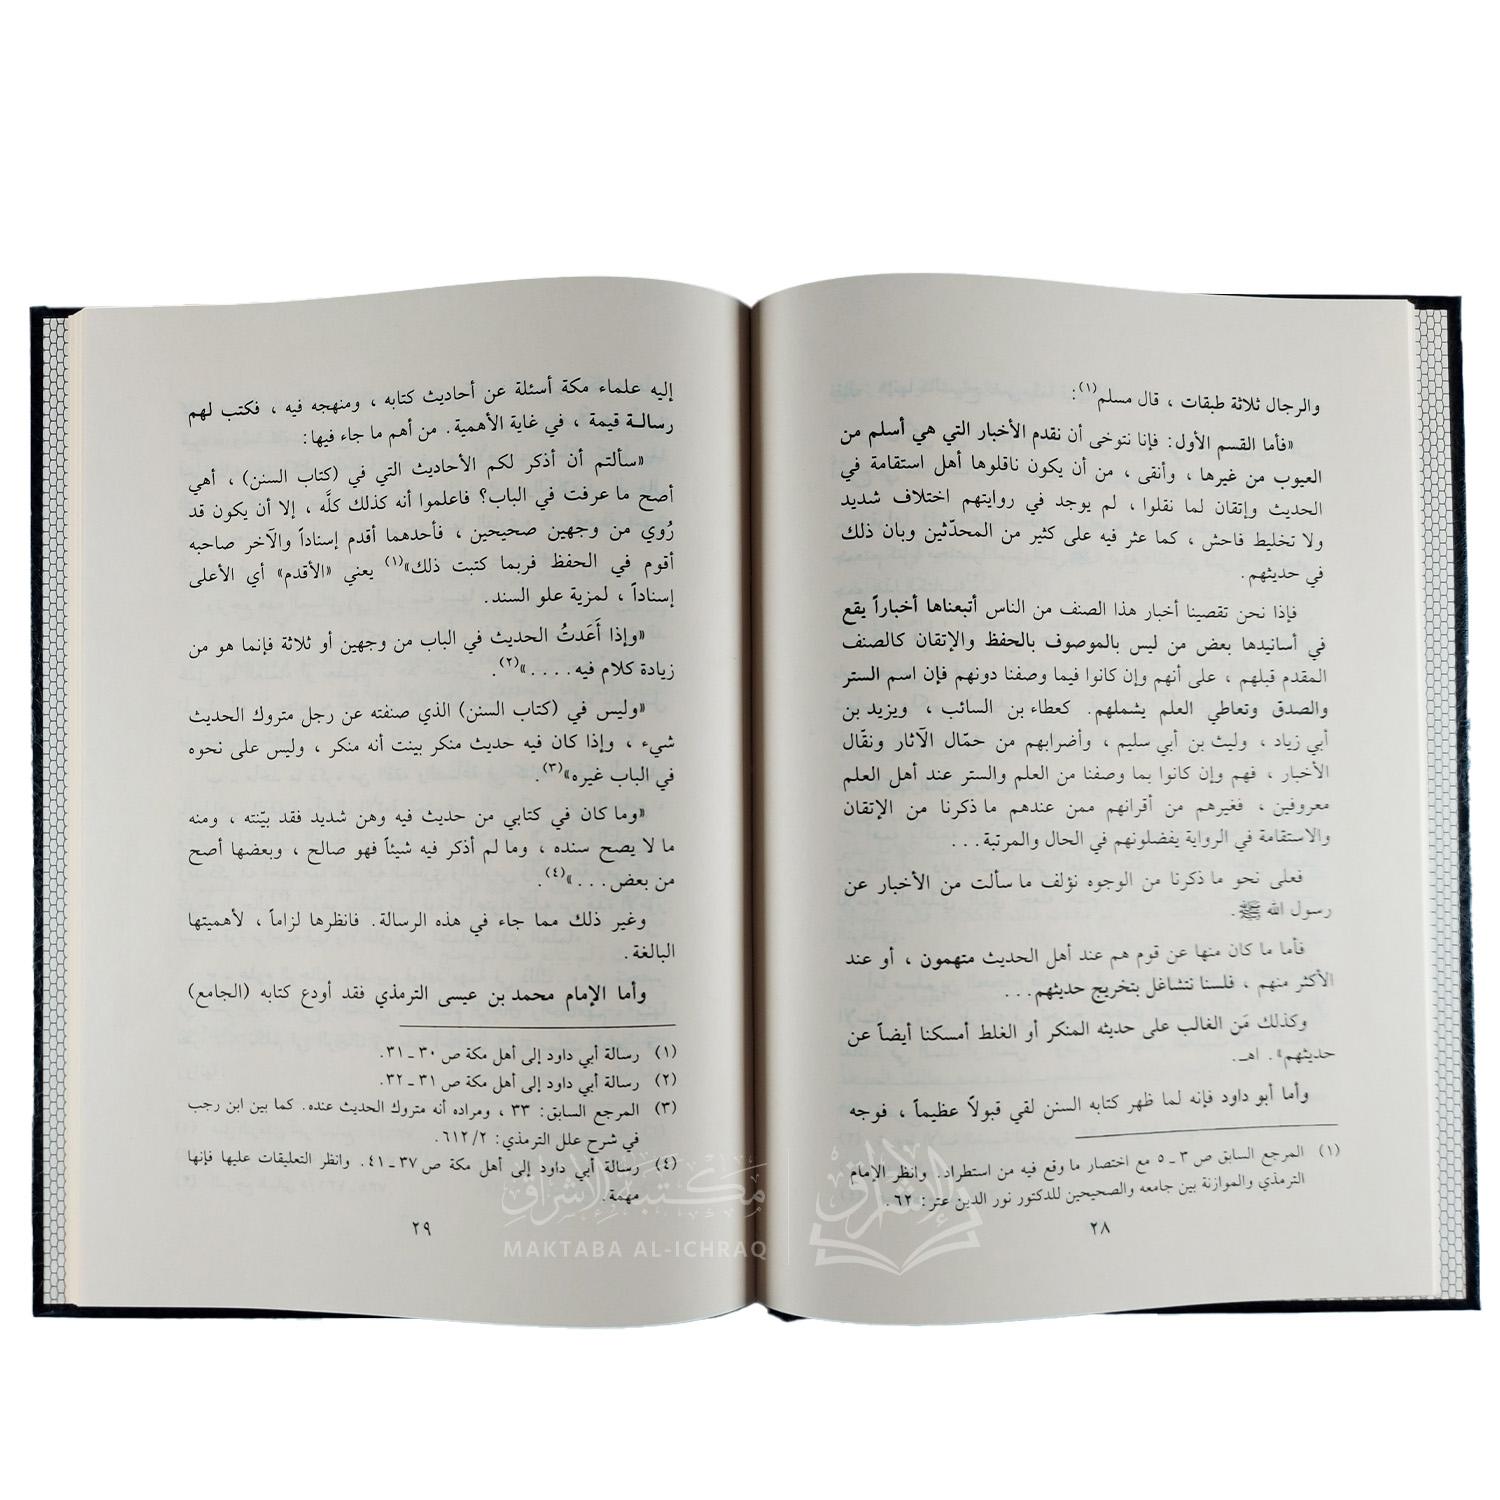 والرجال ثلاثة طبقات ، قال مسلم(١):
«فأما القسم الأول: فإنا نتوخى أن نقدم الأخبار التي هي أسلم من
العيوب من غيرها ، وأنقى ، من أن يكون ناقلوها أهل استقامة في
الحديث وإتقان لما نقلوا ، لم يوجد في روايتهم اختلاف شديد
ولا تخليط فاحش ، كما عثر فيه على كثير من المحدّثين وبان ذلك
في حديثهم.
فإذا نحن تقصينا أخبار هذا الصنف من الناس أتبعناها أخباراً يقع
في أسانيدها بعض من ليس بالموصوف بالحفظ والإتقان كالصنف
المقدم قبلهم ، على أنهم وإن كانوا فيما وصفنا دونهم فإن اسم الستر
والصدق وتعاطي العلم يشملهم. كعطاء بن السائب ، ويزيد بن
أبي زياد ، وليث بن أبي سليم ، وأضرابهم من حمّال الآثار ونقّال
الأخبار ، فهم وإن كانوا بما وصفنا من العلم والستر عند أهل العلم
معروفين ، فغيرهم من أقرانهم ممن عندهم ما ذكرنا من الإتقان
والاستقامة في الرواية يفضلونهم في الحال والمرتبة...
فعلى نحو ما ذكرنا من الوجوه نؤلف ما سألت من الأخبار عن
رسول الله ﷺ.
فأما ما كان منها عن قوم هم عند أهل الحديث متهمون ، أو عند
الأكثر منهم ، فلسنا نتشاغل بتخريج حديثهم...
وكذلك مَن الغالب على حديثه المنكر أو الغلط أمسكنا أيضاً عن
حديثهم». اهـ.
وأما أبو داود فإنه لما ظهر كتابه السنن لقي قبولاً عظيماً ، فوجه
(١) المرجع السابق ص ٣ ـ ٥ مع اختصار ما وقع فيه من استطراد. وانظر الإمام
الترمذي والموازنة بين جامعه والصحيحين للدكتور نور الدين عتر: ٦٢.
٢٨
إليه علماء مكة أسئلة عن أحاديث كتابه ، ومنهجه فيه ، فكتب لهم
رسالة قيمة ، في غاية الأهمية. من أهم ما جاء فيها:
«سألتم أن أذكر لكم الأحاديث التي في (كتاب السنن) ، أهي
أصح ما عرفت في الباب؟ فاعلموا أنه كذلك كلَّه ، إلا أن يكون قد
رُوي من وجهين صحيحين ، فأحدهما أقدم إسناداً والآخر صاحبه
أقوم في الحفظ فربما كتبت ذلك»(١) يعني «الأقدم» أي الأعلى
إسناداً ، لمزية علو السند.
«وإذا أَعَدتُ الحديث في الباب من وجهين أو ثلاثة فإنما هو من
زيادة كلام فيه....»(٢).
«وليس في (كتاب السنن) الذي صنفته عن رجل متروك الحديث
شيء ، وإذا كان فيه حديث منكر بينت أنه منكر ، وليس على نحوه
في الباب غيره»(٣).
«وما كان في كتابي من حديث فيه وهن شديد فقد بيّنته ، ومنه
ما لا يصح سنده ، وما لم أذكر فيه شيئاً فهو صالح ، وبعضها أصح
من بعض...»(٤).
وغير ذلك مما جاء في هذه الرسالة. فانظرها لزاماً ، لأهميتها
البالغة.
وأما الإمام محمد بن عيسى الترمذي فقد أودع كتابه (الجامع)
(١) رسالة أبي داود إلى أهل مكة ص ٣٠ ـ ٣١.
(٢) رسالة أبي داود إلى أهل مكة ص ٣١ ـ ٣٢.
(٣) المرجع السابق: ٣٣ ، ومراده أنه متروك الحديث عنده. كما بين ابن رجب
في شرح علل الترمذي: ٦١٢/٢.
(٤) رسالة أبي داود إلى أهل مكة ص ٣٧ ـ ٤١. وانظر التعليقات عليها فإنها
مهمة.
٢٩
مكتبة الإشراق
MAKTABA AL-ICHRAQ
الإشراق